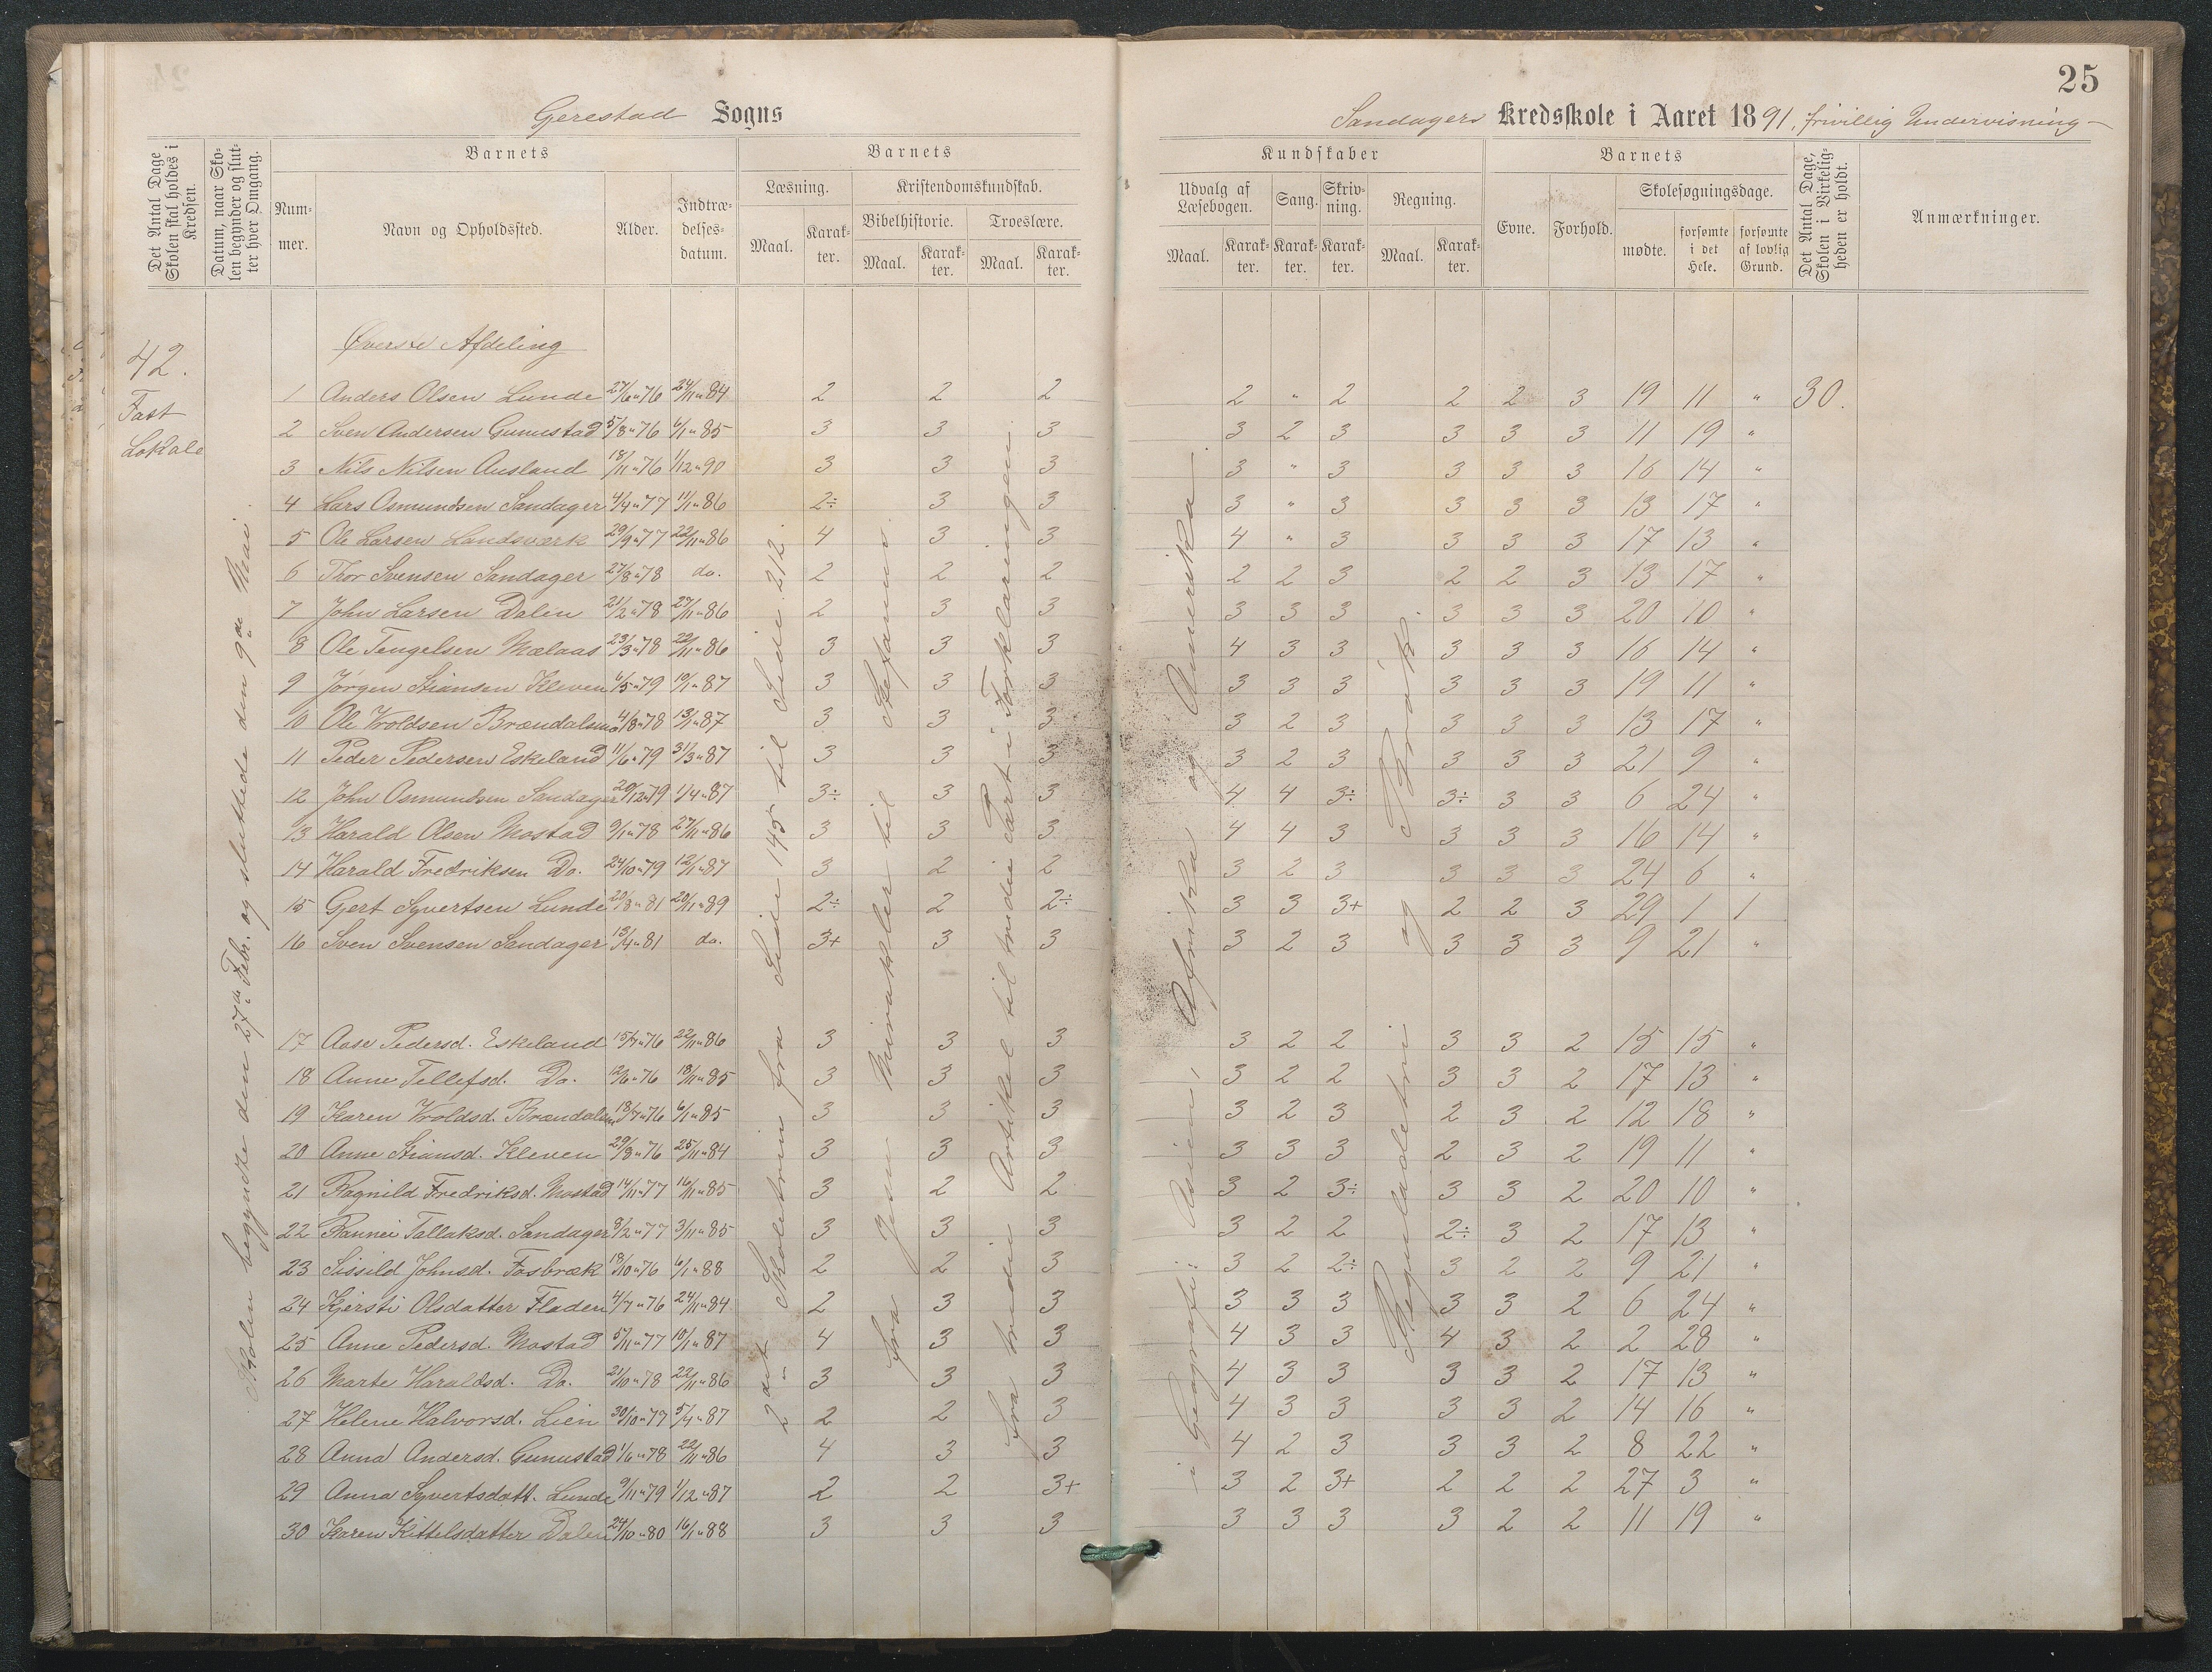 25
Gerestad Sogns
Sandagers Kredsskole i Aaret 1891, frivillig Undervisning –
Det Antal Dage Skolen skal holdes i Kredsen.
Datum, naar Skolen begynder og slutter hver Omgang.
Barnets
Nummer.
Navn og Opholdssted.
Alder.
Indtrædelsesdatum.
Barnets
Læsning.
Maal.
Karakter.
Kristendomskundskab.
Bibelhistorie.
Maal.
Karakter.
Troeslære.
Maal.
Karakter.
Kundskaber
Udvalg af Læsebogen.
Maal.
Karakter.
Sang.
Karakter.
Skrivning.
Karakter.
Regning.
Maal.
Karakter.
Barnets
Evne.
Forhold.
Skolesøgningsdage.
mødte.
forsømte i det Hele.
forsømte af lovlig Grund.
Det Antal Dage, Skolen i Virkeligheden er holdt.
Anmærkninger.
42.
Fast
Lokale
Skolen begyndte den 27de Febr. og sluttede den 9de Mai.
2det Skoletrin fra Side 145 til Side 212.
fra Jesu Mirakler til Stefanus.
fra tredie Artikel til tredie Part i Forklaringen
i Geografi: Asien, Afrika og Amerika
Reguladetri og Brøk
Øverste Afdeling
1 Anders Olsen Lunde 27/6 " 76 24/11 " 84 2 2 2 2 " 2 2 2 3 19 11 " 30.
2 Sven Andersen Gunustad 5/8 " 76 6/1 " 85 3 3 3 3 2 3 3 3 3 11 19 "
3 Nils Nilsen Ausland 18/11 " 76 1/12 " 90 3 3 3 3 " 3 3 3 3 16 14 "
4 Lars Osmundsen Sandager 4/4 " 77 11/1 " 86 2÷ 3 3 3 " 3 3 3 3 13 17 "
5 Ole Larsen Landsværk 29/9 " 77 22/11 " 86 4 3 3 4 " 3 3 3 3 17 13 "
6 Thor Svensen Sandager 27/8 " 78 do. 2 2 2 2 2 3 2 2 3 13 17 "
7 John Larsen Dalen 21/2 " 78 27/11 " 86 2 3 3 3 3 3 3 3 3 20 10 "
8 Ole Tengelsen Mælaas 23/3 " 78 22/11 " 86 3 3 3 4 3 3 3 3 3 16 14 "
9 Jørgen Stiansen Kleven 6/5 " 79 10/1 " 87 3 3 3 3 3 3 3 3 3 19 11 "
10 Ole Vroldsen Brændalsmo 4/8 " 78 13/1 " 87 3 3 3 3 2 3 3 3 3 13 17 "
11 Peder Pedersen Eskeland 11/6 " 79 31/3 " 87 3 3 3 3 2 3 3 3 3 21 9 "
12 John Osmundsen Sandager 20/12 " 79 1/4 " 87 3÷ 3 3 4 4 3÷ 3÷ 3 3 6 24 "
13 Harald Olsen Mostad 9/1 " 78 27/11 " 86 3 3 3 4 4 3 3 3 3 16 14 "
14 Harald Fredriksen Do. 24/10 " 79 12/1 " 87 3 2 2 3 2 3 3 3 3 24 6 "
15 Gjert Syvertsen Lunde 20/8 " 81 20/1 " 89 2÷ 2 2÷ 3 3 3+ 2 2 3 29 1 1
16 Sven Svensen Sandager 13/4 " 81 do. 3+ 3 3 3 2 3 3 3 3 9 21 "
17 Aase Pedersd. Eskeland 15/7 " 76 22/11 " 86 3 3 3 3 2 2 3 3 2 15 15 "
18 Anne Tellefsd. Do. 12/6 " 76 18/11 " 85 3 3 3 3 2 2 3 3 2 17 13 "
19 Karen Vroldsd. Brændalsmo 18/7 " 76 6/1 " 85 3 3 3 3 2 3 2 3 2 12 18 "
20 Anne Stiansd. Kleven 29/8 " 76 25/11 " 84 3 3 3 3 3 3 2 3 2 19 11 "
21 Ragnild Fredriksd. Mostad 14/11 " 77 16/11 " 85 3 2 2 3 2 3÷ 3 3 2 20 10 "
22 Rannei Tallaksd. Sandager 8/2 " 77 3/11 " 85 3 3 3 3 2 2 2÷ 3 2 17 13 "
23 Sissild Johnsd. Fosbræk 18/10 " 76 6/1 " 88 2 2 3 3 2 2÷ 3 2 2 9 21 "
24 Kjersti Olsdatter Fladen 4/7 " 76 24/11 " 84 2 3 3 3 3 3 3 3 2 6 24 "
25 Anne Pedersd. Mostad 5/11 " 77 10/1 " 87 4 3 3 4 3 3 4 3 2 2 28 "
26 Marte Haraldsd. Do. 21/10 " 78 22/11 " 86 3 3 3 4 3 3 3 3 2 17 13 "
27 Helene Halvorsd. Lien 30/10 " 77 5/4 " 87 2 2 3 4 3 3 3 3 2 14 16 "
28 Anna Andersd. Gunustad 1/6 " 78 22/11 " 86 4 3 3 4 2 3 3 3 2 8 22 "
29 Anna Syvertsdatt. Lunde 9/11 " 79 1/12 " 87 2 2 3+ 3 2 3+ 2 2 2 27 3 "
30 Karen Kittelsdatter Dalen 24/10 " 80 16/1 " 88 3 3 3 3 3 3 3 2 2 11 19 "